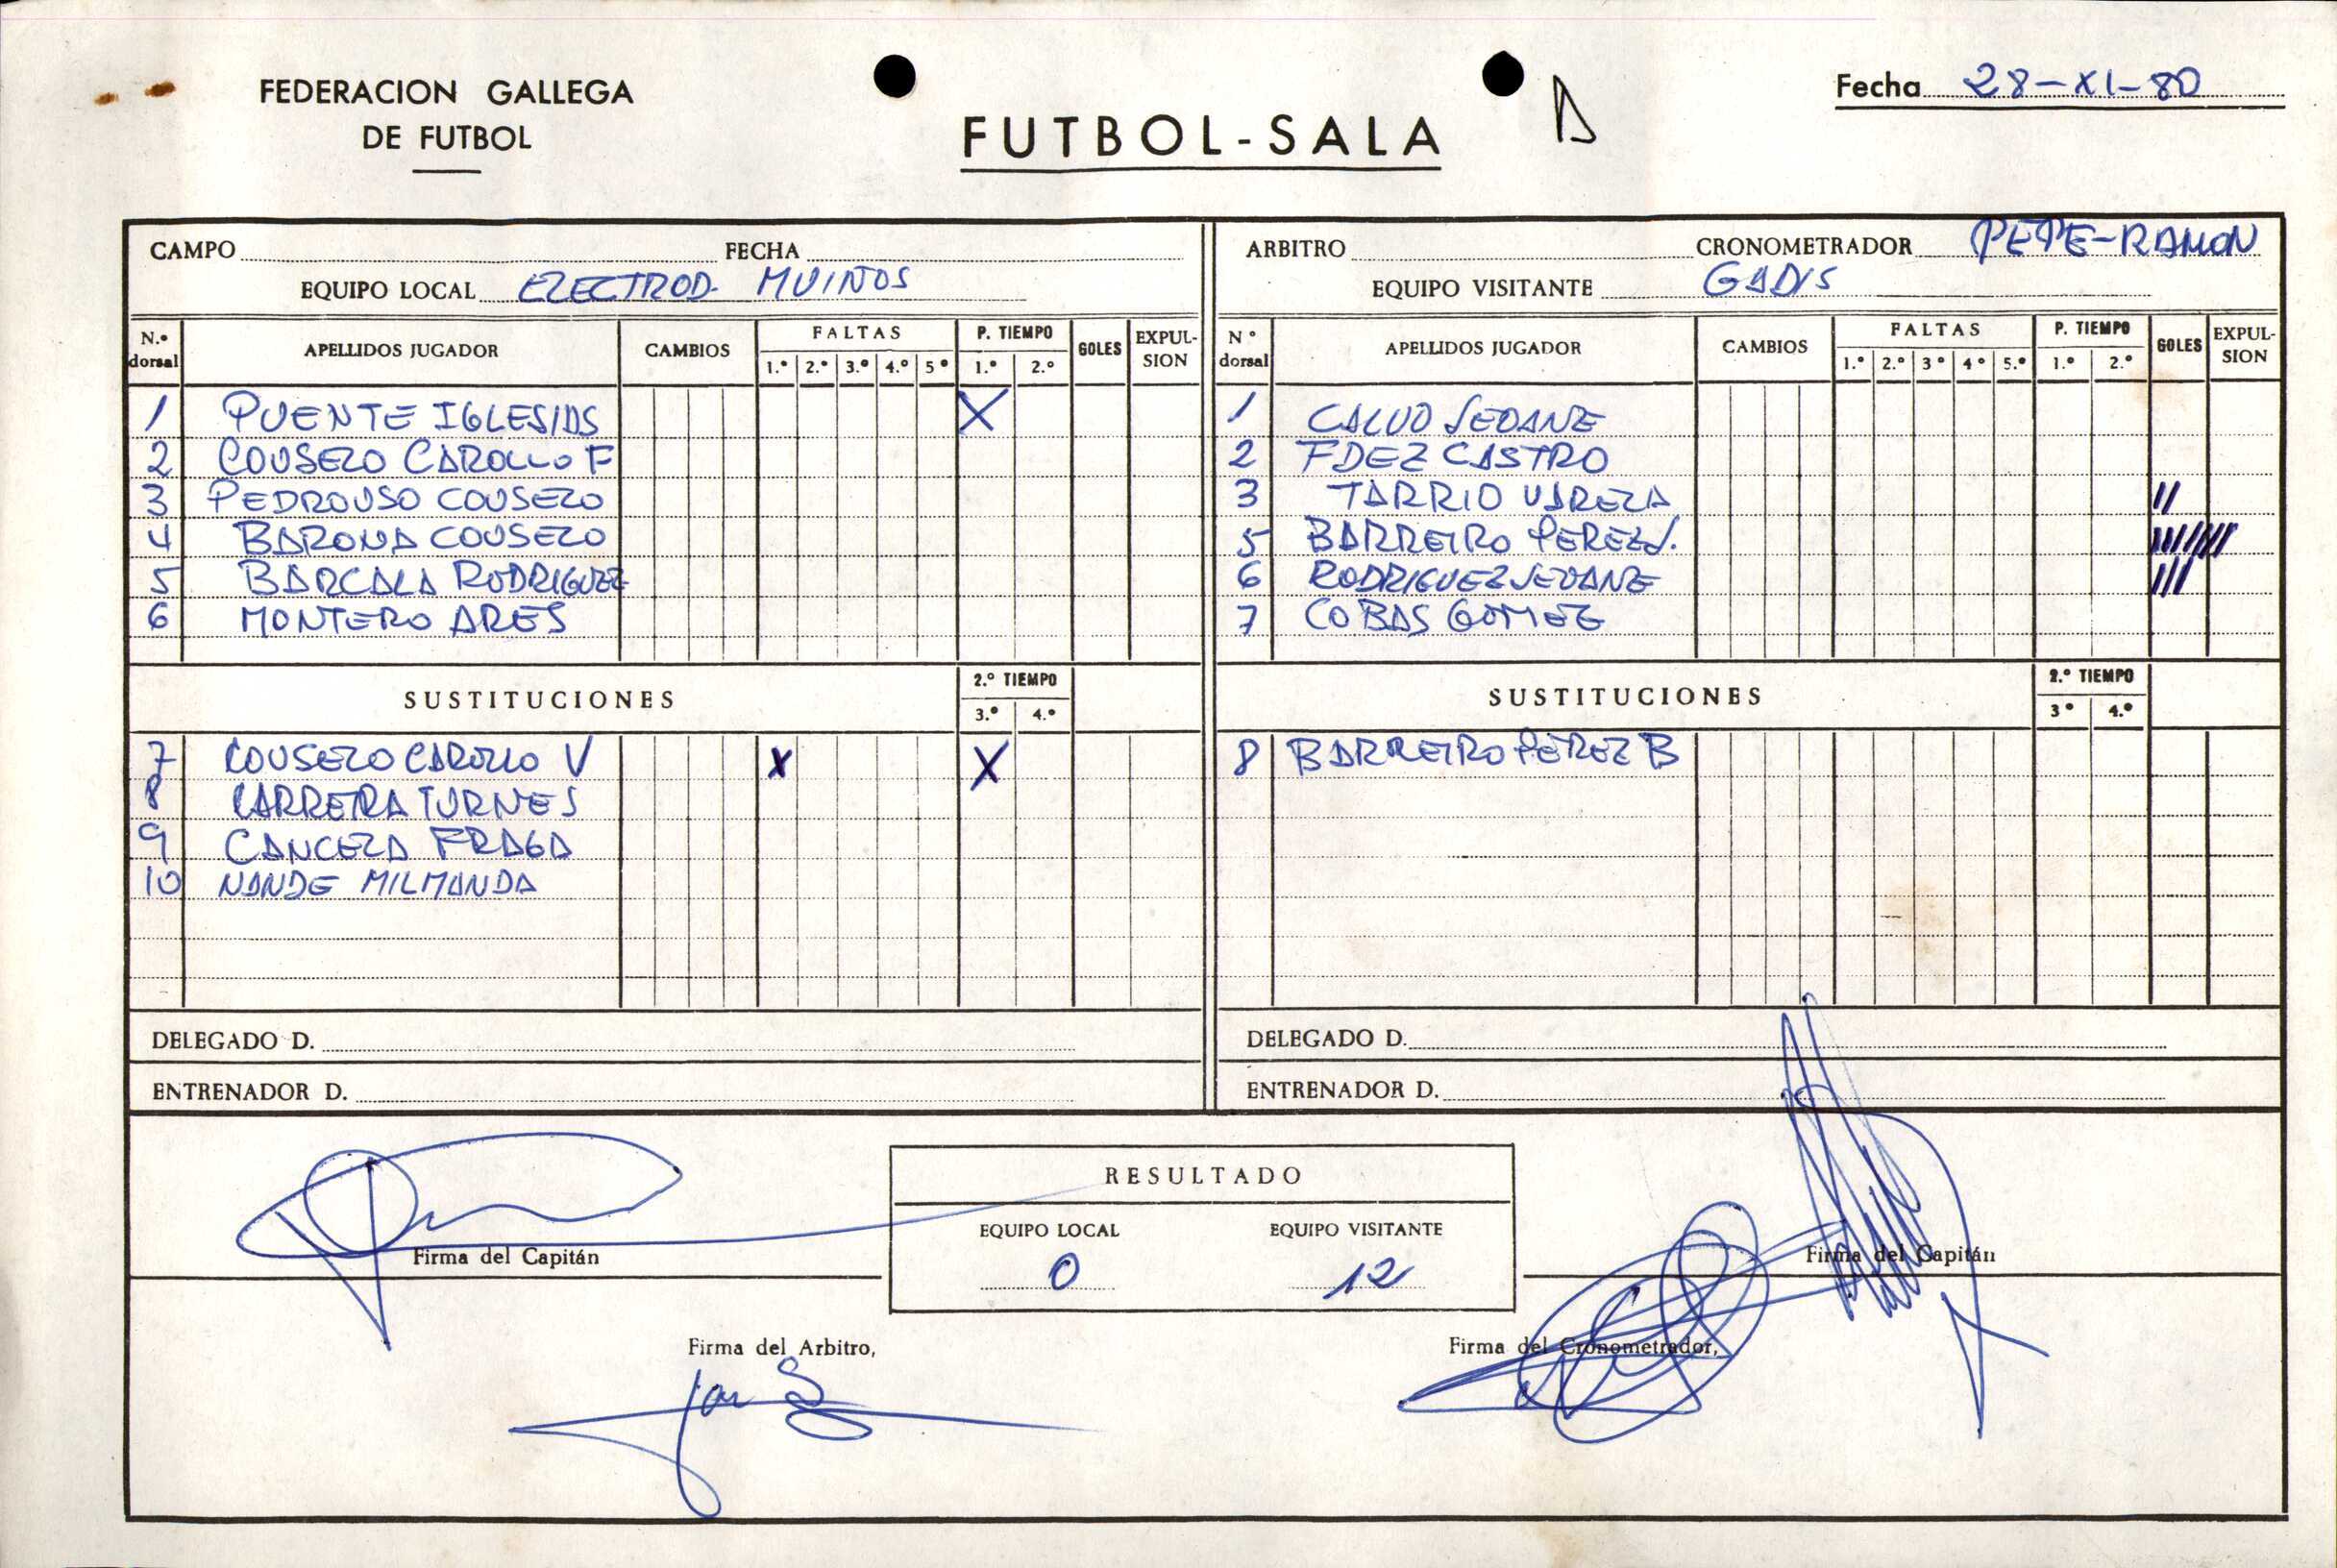 FEDERACION GALLEGA
DE FUTBOL
FUTBOL-SALA
Fecha 28-XI-80
CAMPO FECHA
EQUIPO LOCAL ELECTROD. MUIÑOS
ARBITRO CRONOMETRADOR PEPE-RAMON
EQUIPO VISITANTE GADIS
N.º dorsal APELLIDOS JUGADOR CAMBIOS FALTAS 1.º 2.º 3.º 4.º 5º P. TIEMPO 1.º 2.º GOLES EXPUL-SION
1 PUENTE IGLESIAS X
2 COUSELO CAROLLO F
3 PEDROUSO COUSELO
4 BARONA COUSELO
5 BARCALA RODRIGUEZ
6 MONTERO ARES
SUSTITUCIONES 2.º TIEMPO 3.º 4.º
7 COUSELO CAROLLO V X X
8 CARREIRA TURNES
9 CANCELA FRAGA
10 NANDE MILMANDA
DELEGADO D.
ENTRENADOR D.
N º dorsal APELLIDOS JUGADOR CAMBIOS FALTAS 1.º 2.º 3º 4º 5.º P. TIEMPO 1.º 2.º GOLES EXPUL-SION
1 CALVO SEOANE
2 FDEZ CASTRO
3 TARRIO VARELA II
5 BARREIRO PEREZ J. IIIIIII
6 RODRIGUEZ SEOANE III
7 COBAS GOMEZ
SUSTITUCIONES 2.º TIEMPO 3º 4.º
8 BARREIRO PEREZ B
DELEGADO D.
ENTRENADOR D.
Firma del Capitán
RESULTADO
EQUIPO LOCAL EQUIPO VISITANTE
0 12
Firma del Capitán
Firma del Arbitro,
Firma del Cronometrador,